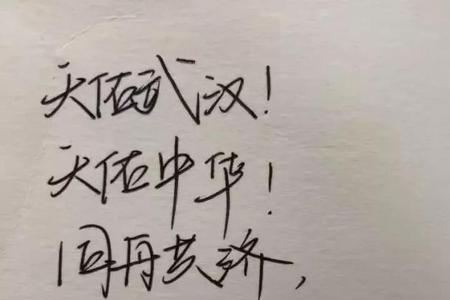 天佑武汉！
天佑中华！
同舟共济，